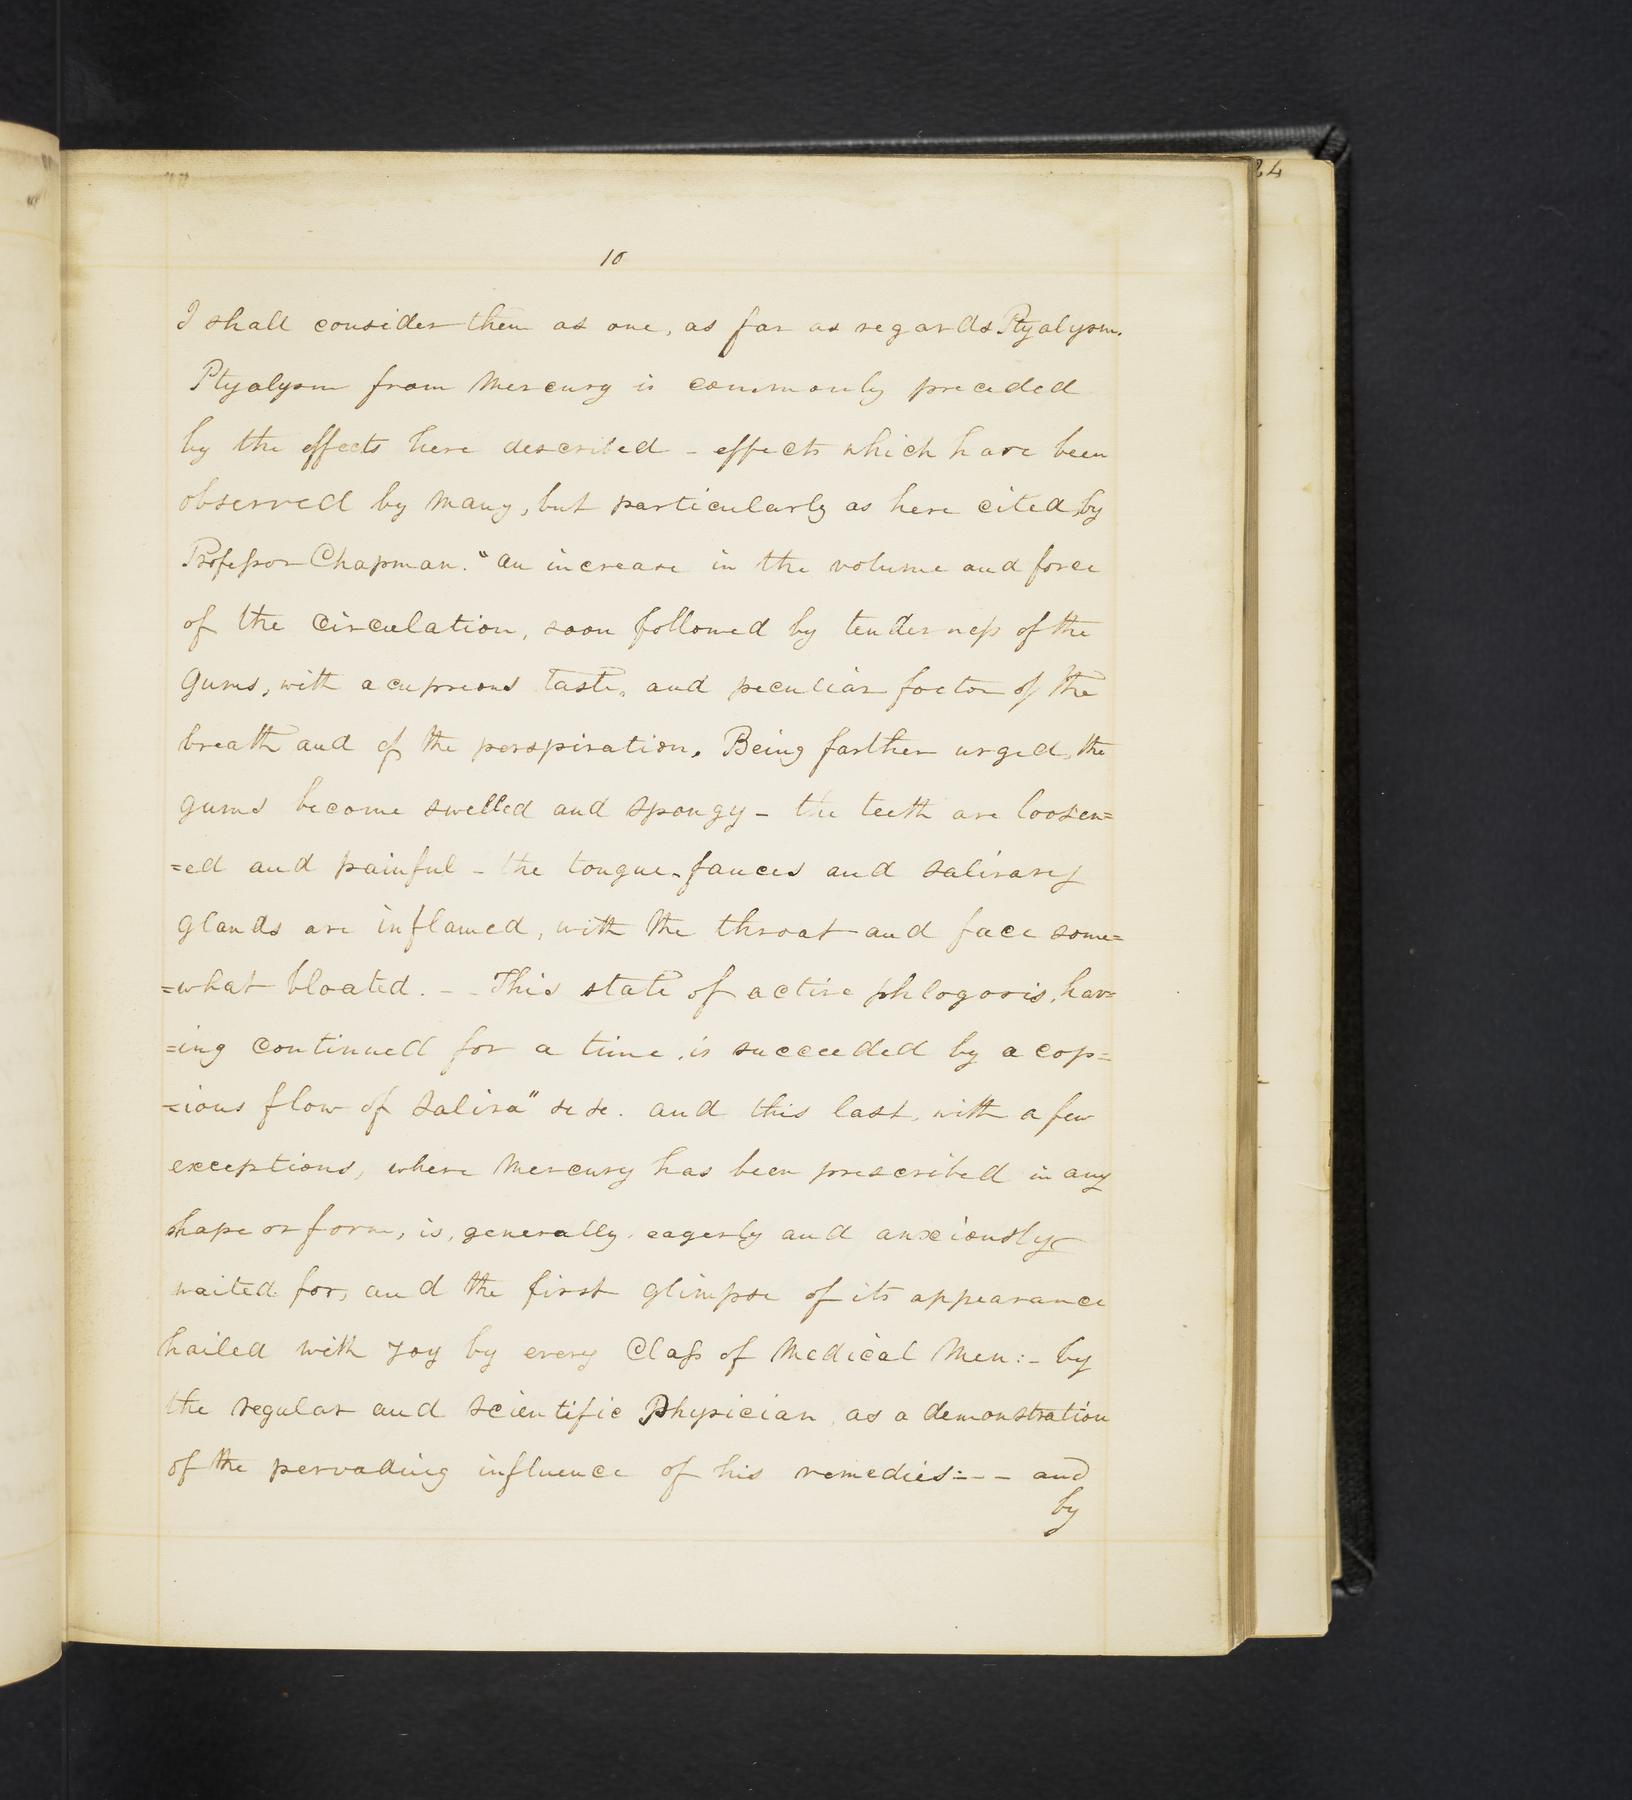 24
10
I shall consider them as one, as far as regards Ptyalysm.
Ptyalysm from Mercury is commonly preceded
by the effects here described - effects which have been
observed by many, but particularly as here cited, by
Professor Chapman. "an increase in the volume and force
of the circulation, soon followed by tenderness of the
gums, with a cupreous taste, and peculiar foetor of the
breath and of the perspiration. Being farther urged, the
gums become swelled and spongy - the teeth are loosen=
=ed and painful - the tongue, fauces and salivary
glands are inflamed, with the throat and face some=
=what bloated. - - This state of active phlogosis, hav=
=ing continued for a time, is succeeded by a cop=
=ious flow of saliva" &c &c. and this last, with a few
exceptions, where Mercury has been prescribed in any
shape or form, is, generally, eagerly and anxiously
waited for, and the first glimpse of its appearance
hailed with joy by every Class of Medical Men:- by
the regular and scientific Physician, as a demonstration
of the pervading influence of his remedies:-- - and
by